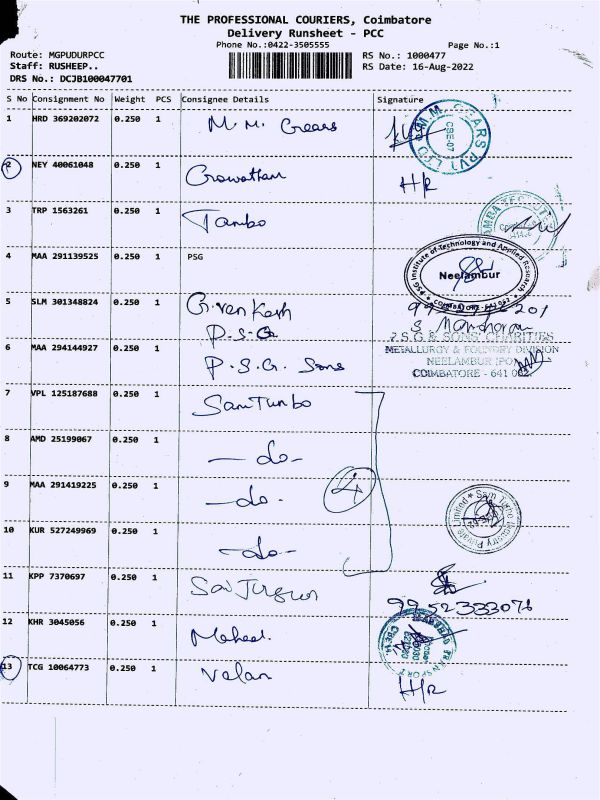 THE PROFESSIONAL COURIERS, Coimbatore
Delivery Runsheet - PCC
Phone No.:0422-3505555
Page No.:1
Route: MGPUDURPCC
RS No.: 1000477
Staff: RUSHEEP..
RS Date: 16-Aug-2022
DRS No.: DCJB100047701
S No Consignment No Weight PCS Consignee Details Signature
1 HRD 369202072 0.250 1 M. M. Gears
M.M. GEARS PVT LTD
CBE-07
2 NEY 40061048 0.250 1 Growatham H/R
3 TRP 1563261 0.250 1 Tambo
4 MAA 291139525 0.250 1 PSG
PSG Institute of Technology and Applied Research
Neelambur
COIMBATORE-641 062
5 SLM 301348824 0.250 1 G. venkesh
P.S.G
S Manoharan
6 MAA 294144927 0.250 1 P.S.G. Sons
P.S.G & SONS' CHARITIES
METALLURGY & FOUNDRY DIVISION
NEELAMBUR (PO)
COIMBATORE - 641 062.
7 VPL 125187688 0.250 1 Sam Turbo
8 AMD 25199067 0.250 1 - do -
9 MAA 291419225 0.250 1 - do -
4
10 KUR 527249969 0.250 1 - do -
Sam Turbo Industry Private Limited
11 KPP 7370697 0.250 1
9952333076
12 KHR 3045056 0.250 1 Mahesh
TRANSPORT
13 TCG 10064773 0.250 1 Velan H/R